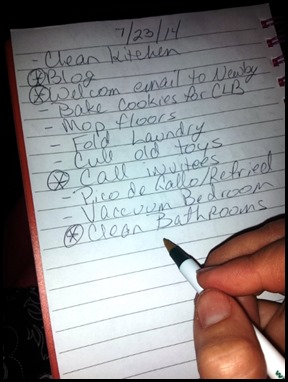 7/23/14
- Clean Kitchen
⊛ Blog
⊛ Welcom email to Newby
- Bake Cookies for CLB
- Mop floors
- Fold Laundry
- Cull old toys
⊛ Call invitees
- Pico de Gallo/Refried
- Vaccuum Bedroom
⊛ Clean Bathrooms